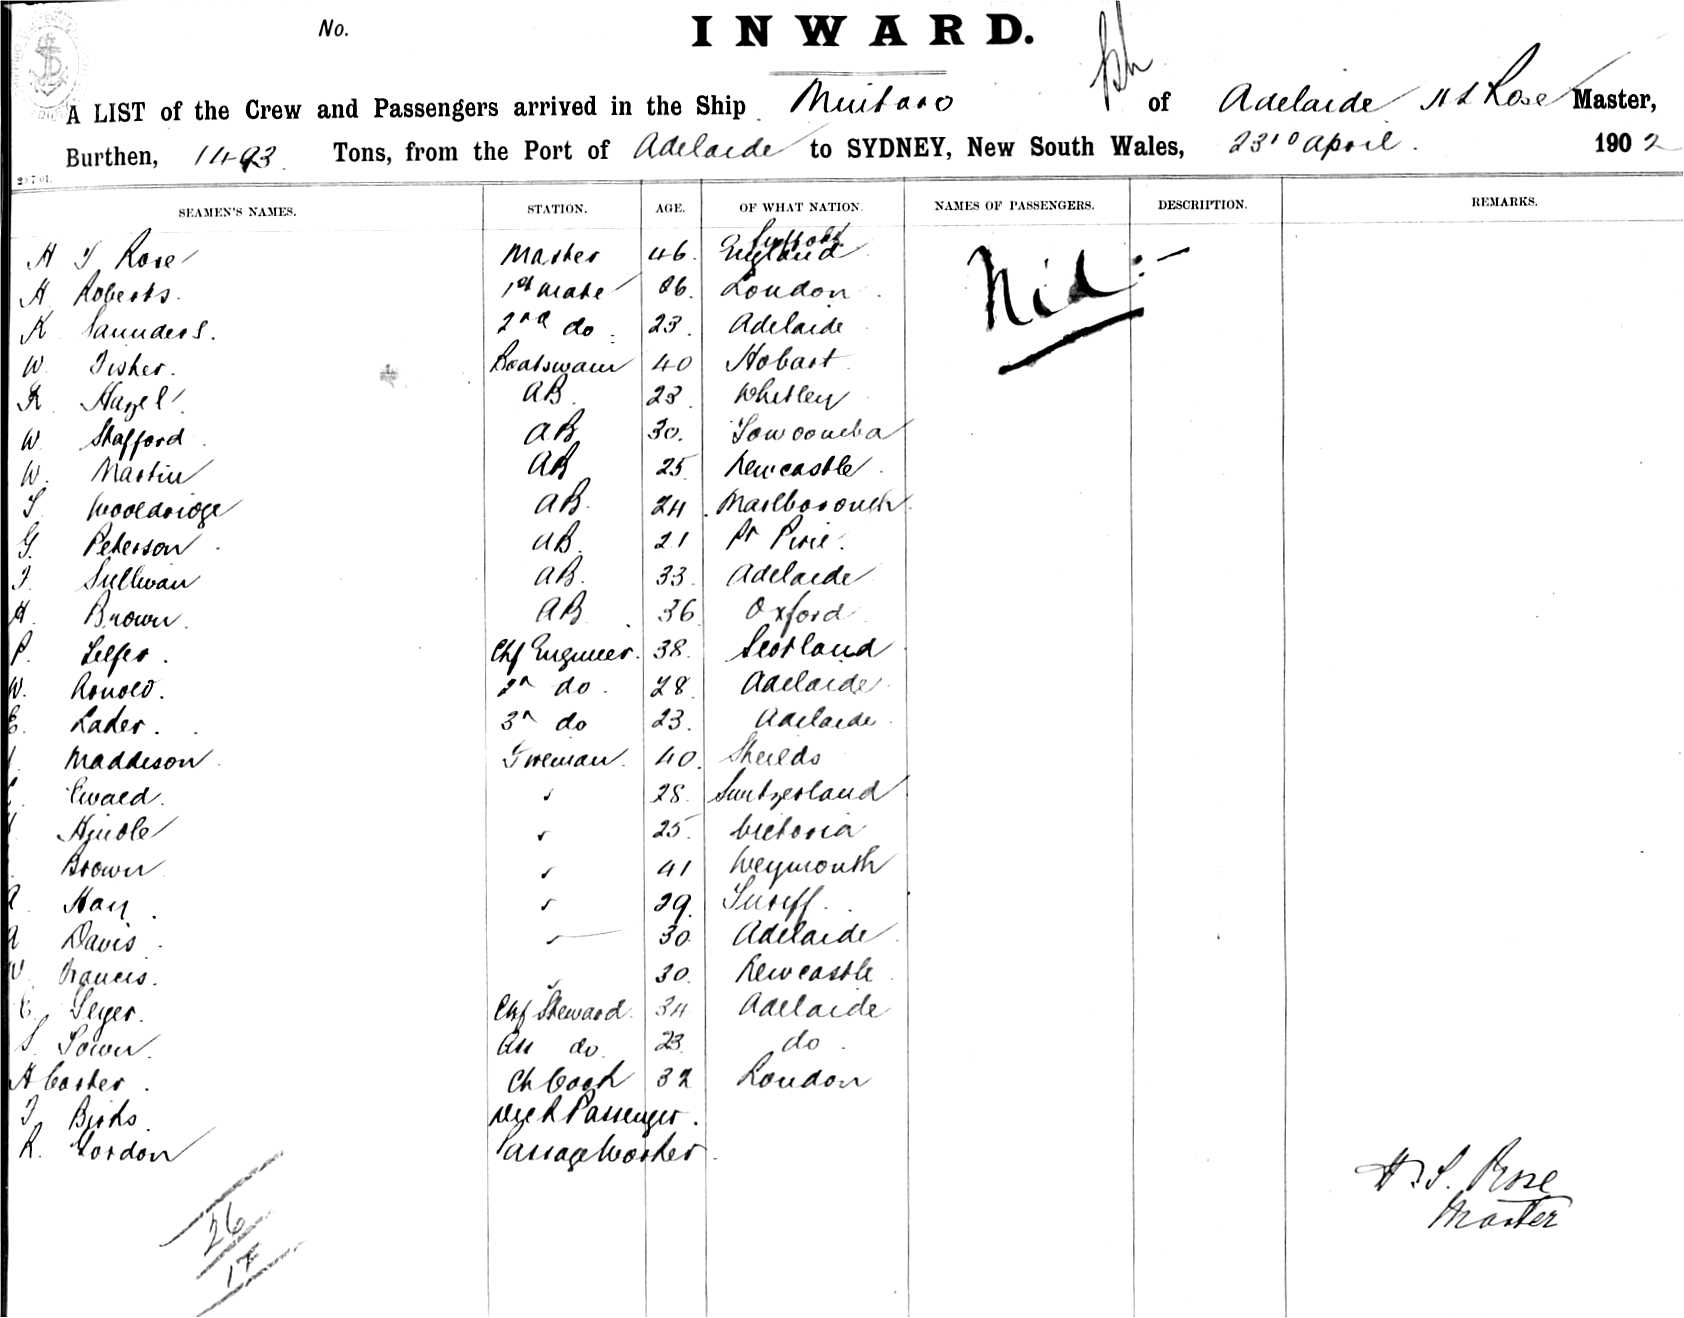 No.
INWARD.
A LIST of the Crew and Passengers arrived in the Ship Mintaro of Adelaide H S Rose Master,
Burthen, 1493 Tons, from the Port of Adelaide to SYDNEY, New South Wales, 23rd April. 1902
SEAMEN'S NAMES. STATION. AGE. OF WHAT NATION. NAMES OF PASSENGERS. DESCRIPTION. REMARKS.
H S Rose Master 46. England Nil :-
H Roberts. 1st mate 26. London.
K Saunders. 2nd do. 23. Adelaide
W Fisher. Boatswain 40 Hobart
Hazel AB. 23 Whitley
W Stafford AB 30. Towoomba
W. Martin AB 25 Newcastle.
S. Wooldridge AB. 24 Marlborough
G. Peterson AB. 21 Pt Pirie.
J. Sullivan AB. 33. Adelaide
H. Brown. AB 36 Oxford
P. Telfer. Chf Engineer. 38. Scotland
W. Arnold. 2n do. 28. Adelaide
E. Lader. 3n do 23. Adelaide.
Maddison Fireman. 40. Sheilds
Ewald. 28. Switzerland
Hindle 25. Victoria
Brown 41 Weymouth
A. Hay. 29.
A Davis. 30. Adelaide
W. Francis. 30. Newcastle
C. Seyer. Chf Steward. 34 Adelaide
S. Town. Ass do. 23. do.
H Carter. Ch Cook 32 London
J. Birks. Deck Passenger.
R. Gordon Passage Worker.
26
17
H. S. Rose
Master